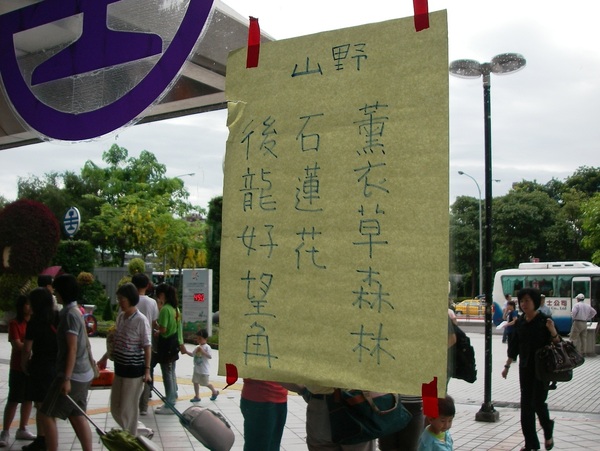 山野
薰衣草森林
石蓮花
後龍好望角